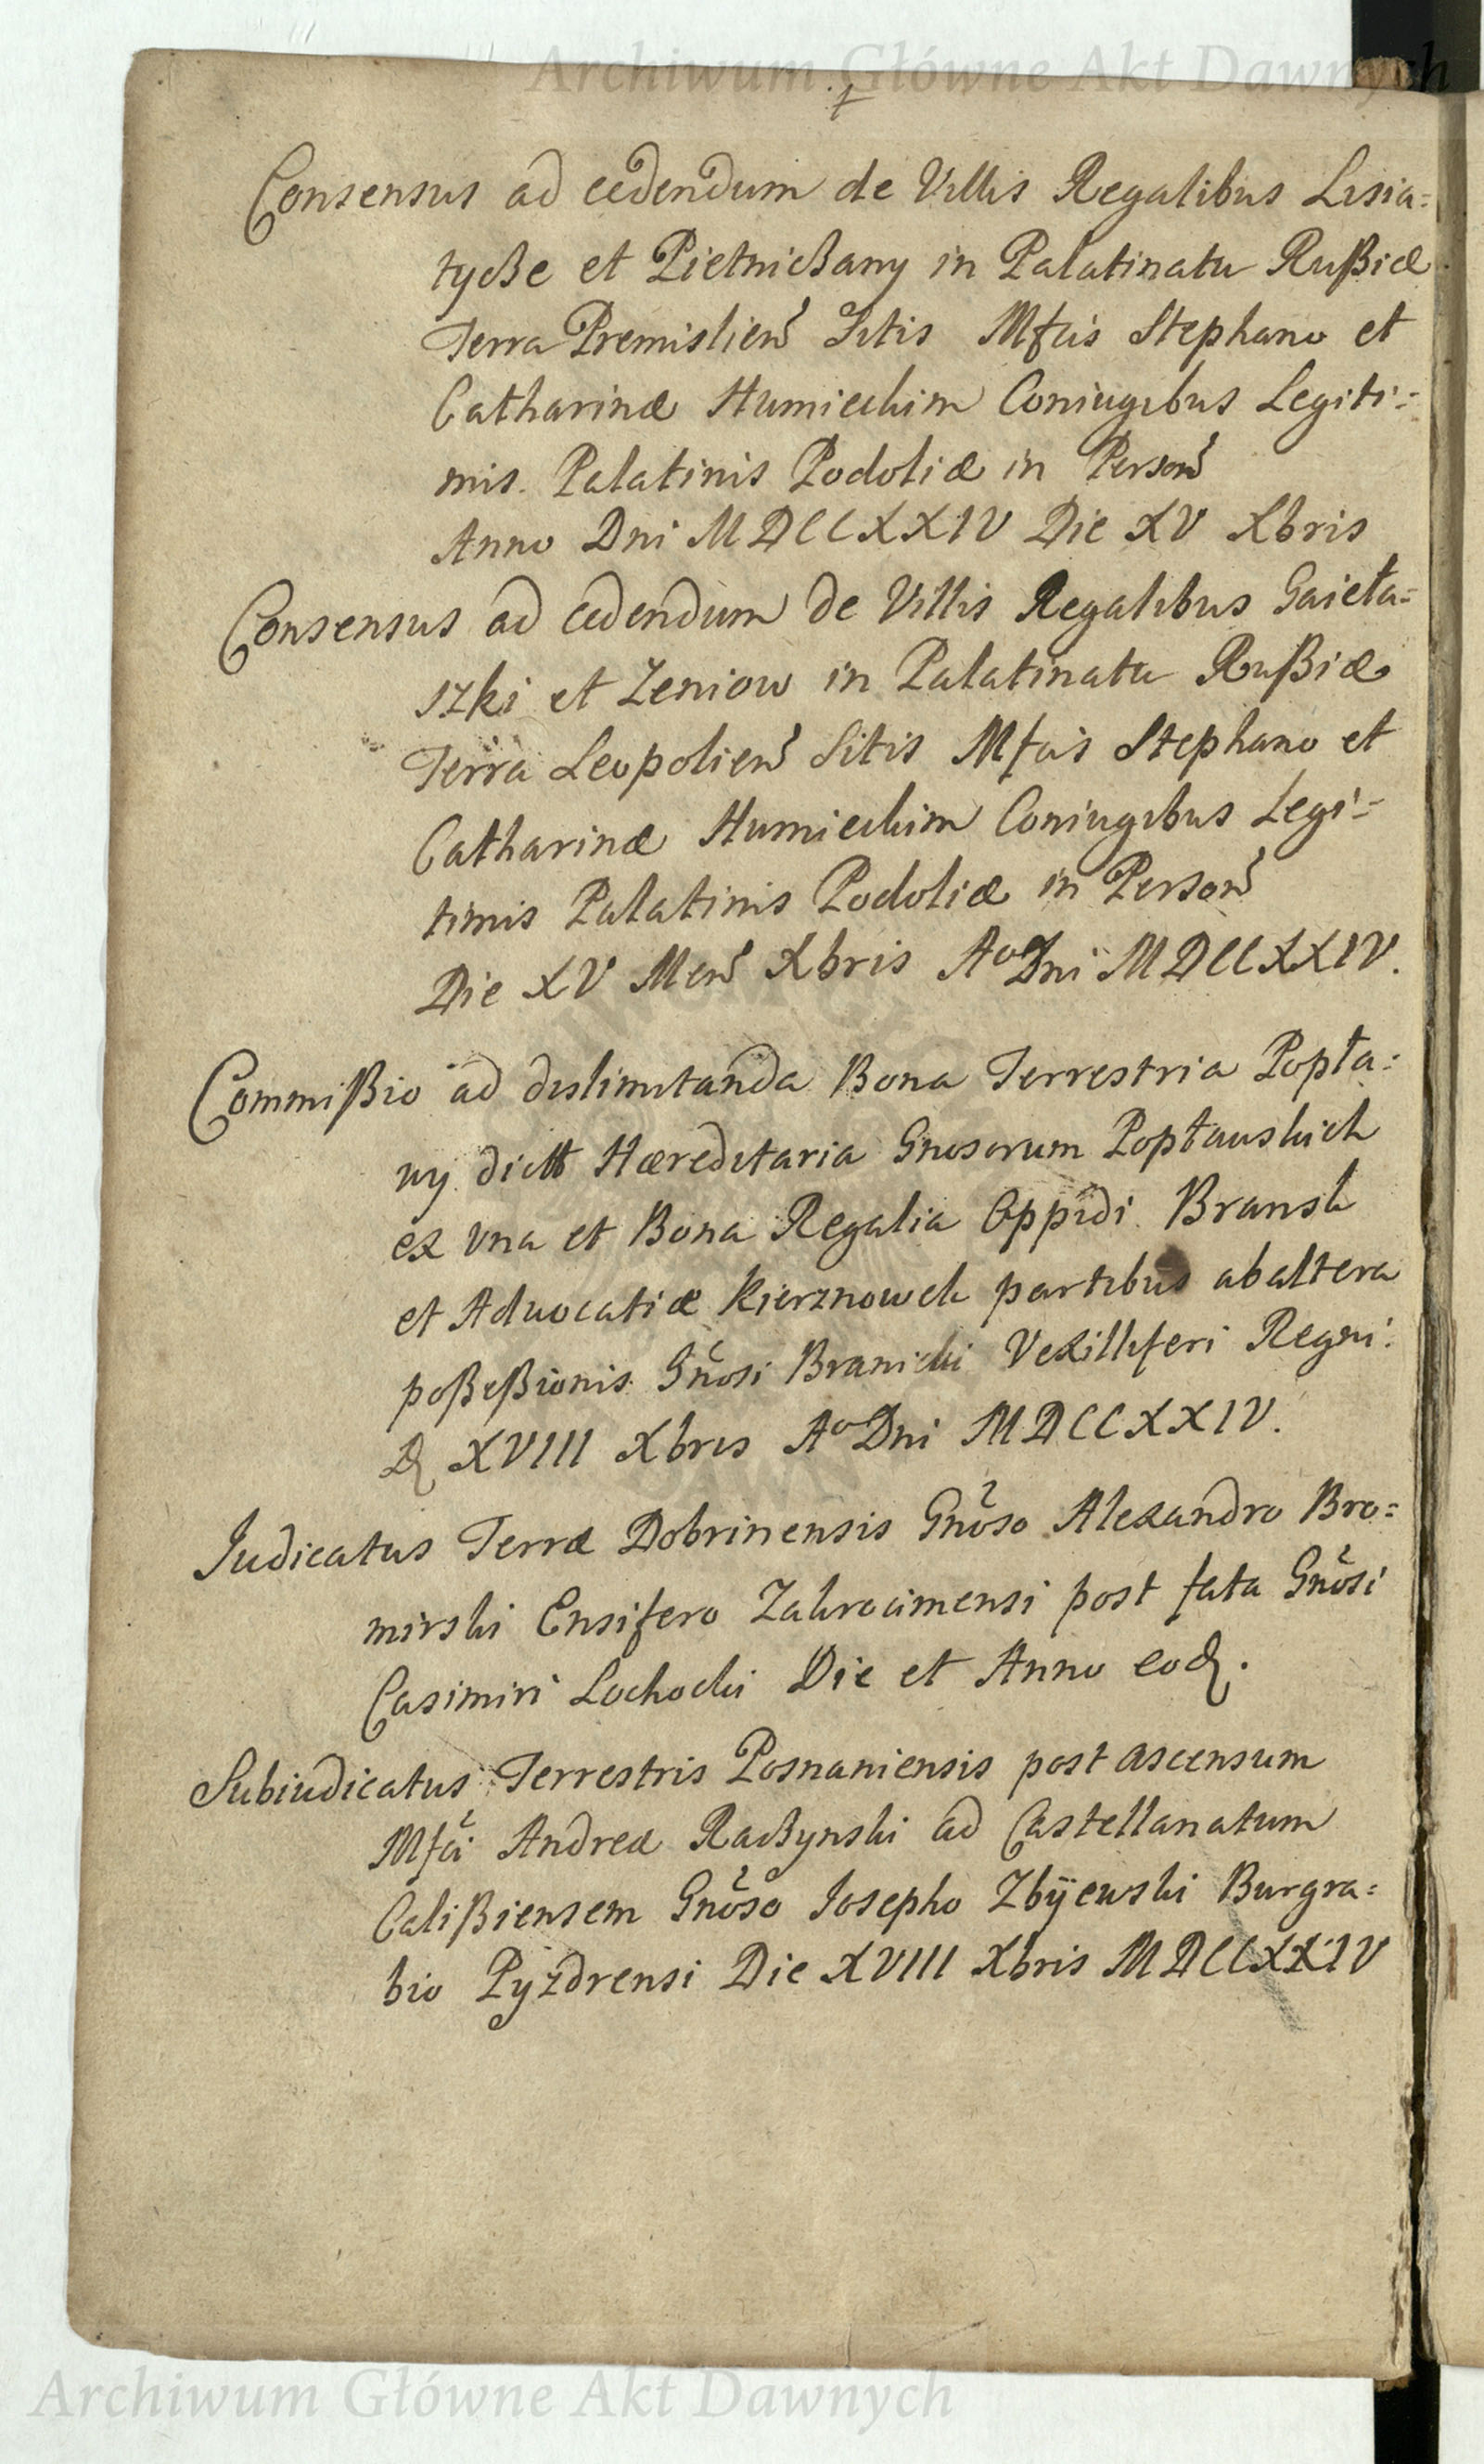 Archiwum Główne Akt Dawnych
Consensus ad cedendum de Villis Regalibus Lisia=
tycße et Pietnicßany in Palatinatu Rußiæ
Terra Premislien̄ Sitis Mfcis Stephano et
Catharinæ Humieckim Coniugibus Legiti=
mis Palatinis Podoliæ in Person̄
Anno Dni MDCCXXIV Die XV Xbris
Consensus ad cedendum de Villis Regalibus Gaieła=
szki et Zeniow in Palatinatu Rußiæ
Terra Leopolien̄ Sitis Mfcis Stephano et
Catharinæ Humieckim Coniugibus Legi=
timis Palatinis Podoliæ in Person̄
Die XV Men̄ Xbris Aº Dni MDCCXXIV.
Commißio ad dislimitanda Bona Terrestria Popła=
wy dictt Hæreditaria Gnosorum Popławskich
ex vna et Bona Regalia Oppidi Bransk
et Aduocatiæ Kierznowek partibus ab altera
poßeßionis Gnosi Branicki Vexilliferi Regni.
D XVIII Xbris Aº Dni MDCCXXIV.
Iudicatus Terræ Dobrinensis Gnoso Alexandro Bro=
mirski Ensifero Zakrocimensi post fata Gnosi
Casimiri Lochocki Die et Anno eod.
Subiudicatus Terrestris Posnaniensis post ascensum
Mfci Andreæ Racßynski ad Castellanatum
Calißiensem Gnoso Iosepho Zbÿewski Burgra=
bio Pyzdrensi Die XVIII Xbris MDCCXXIV
Archiwum Główne Akt Dawnych